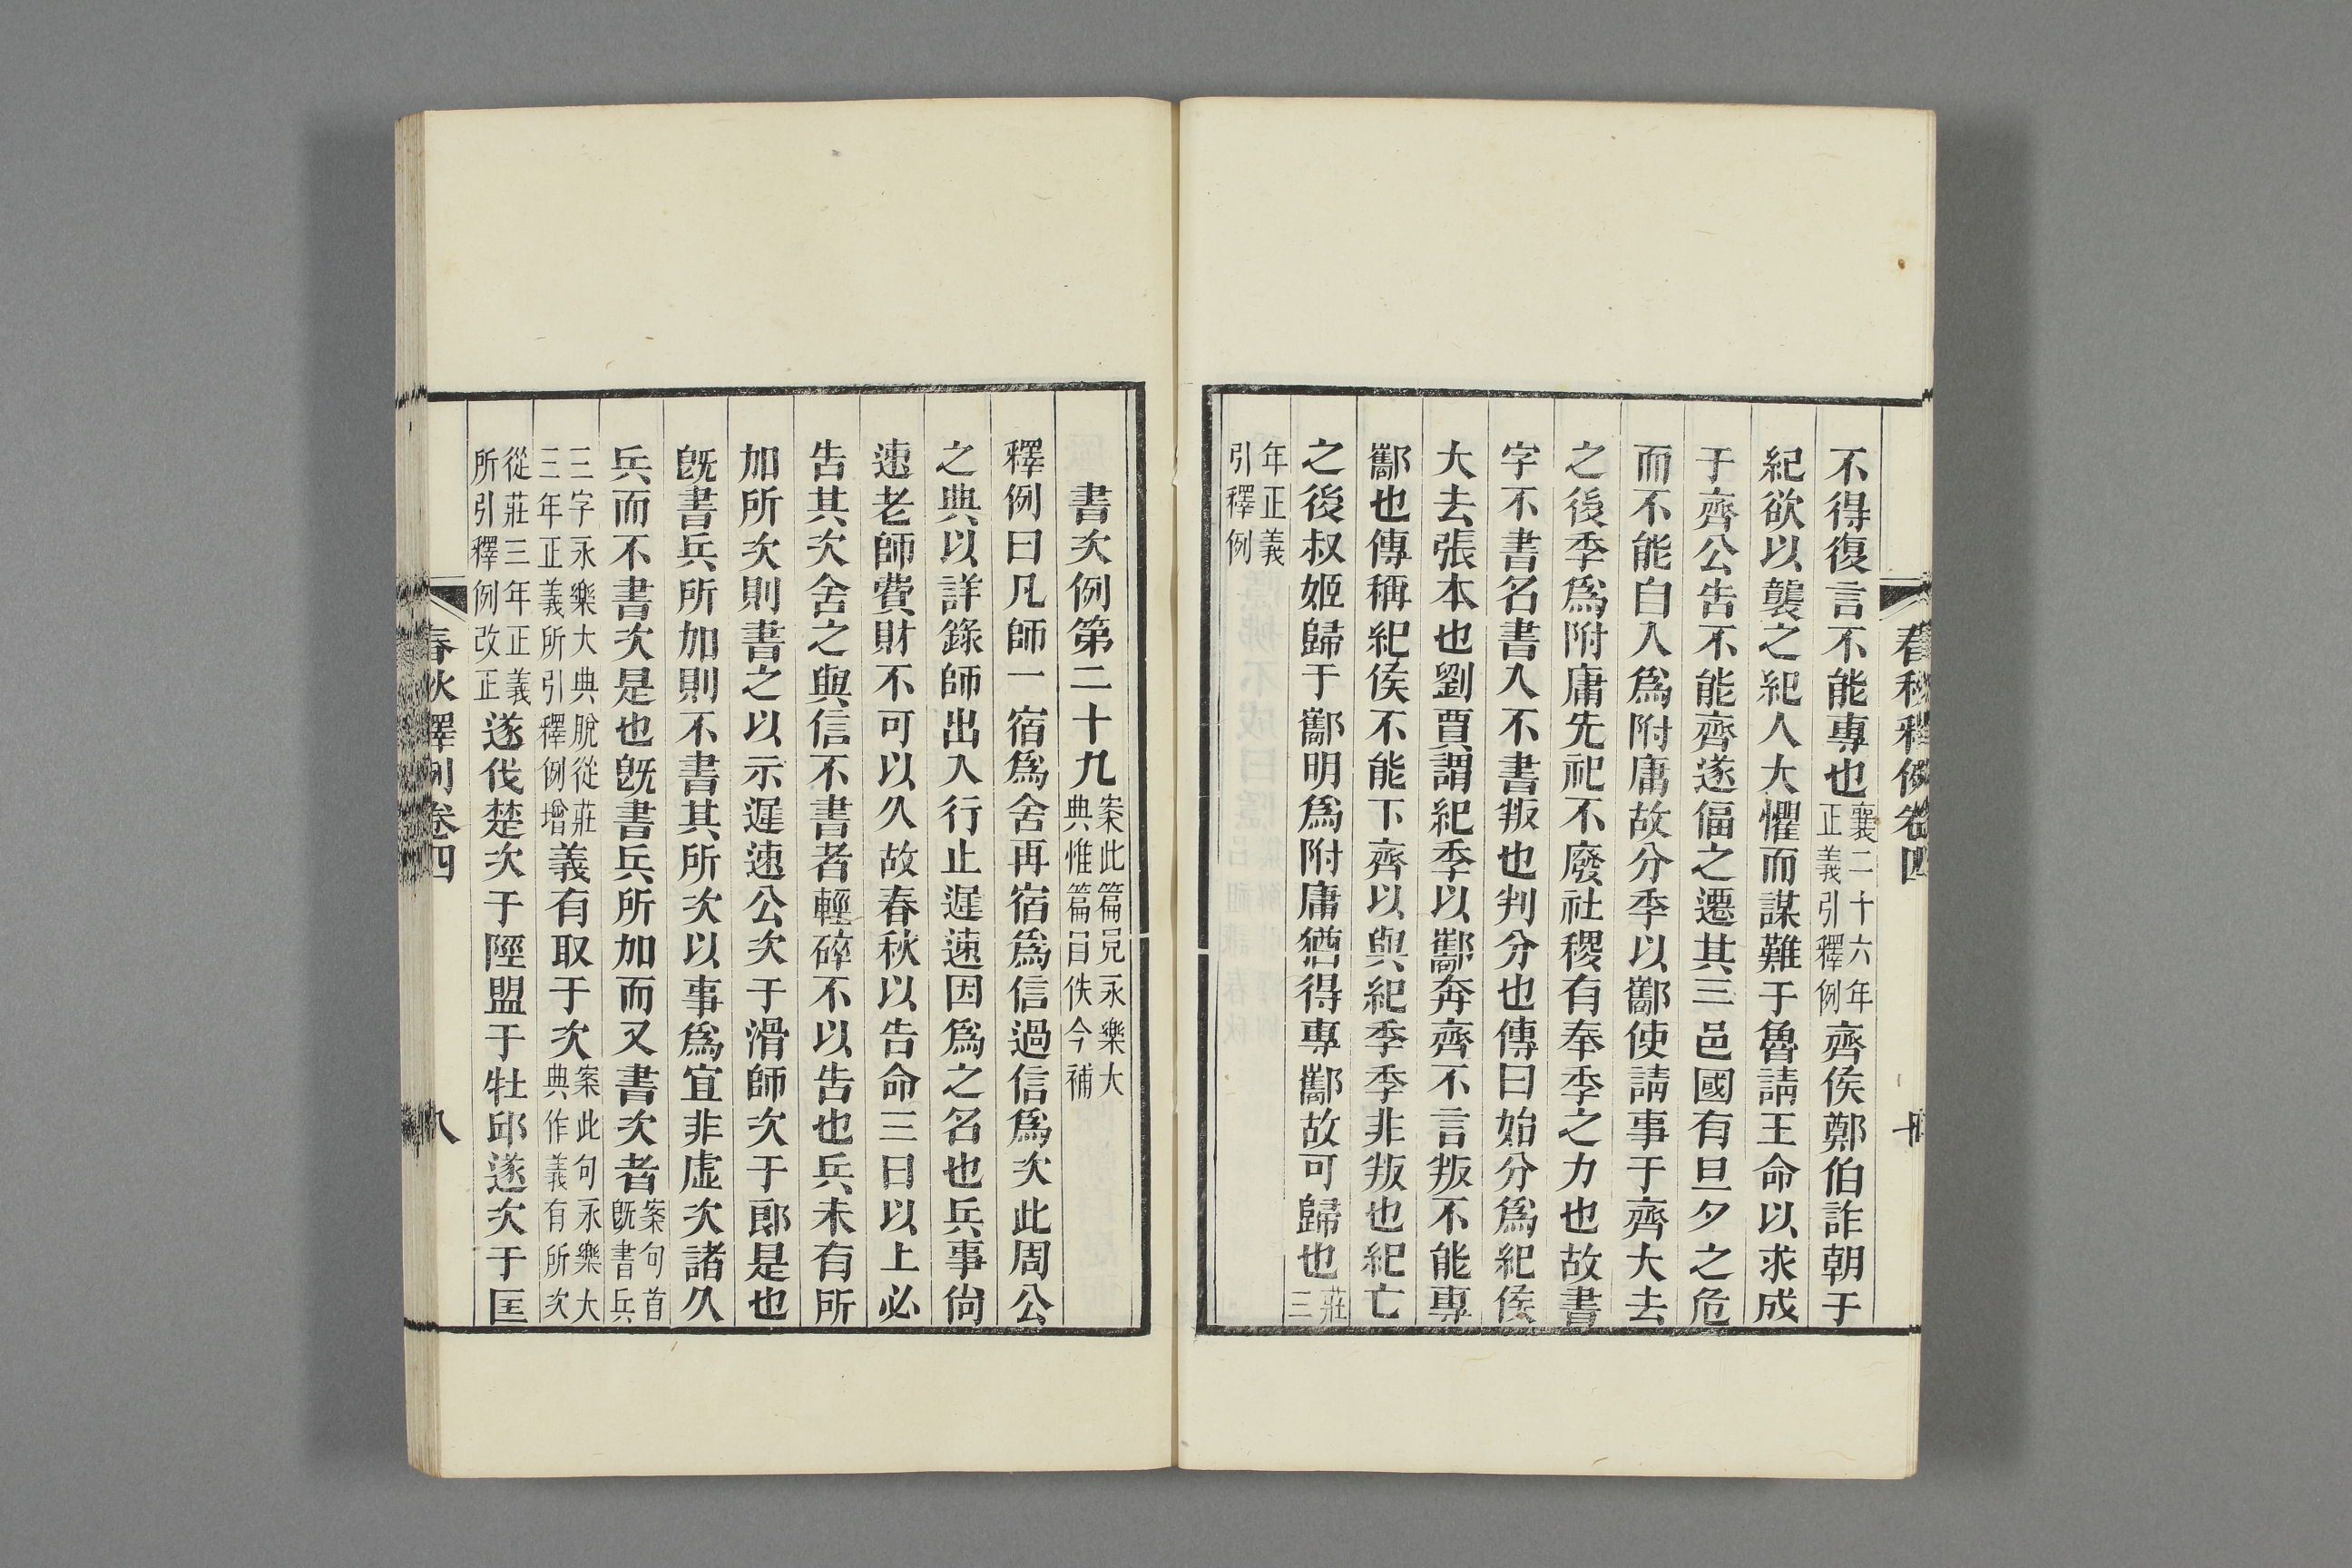 不得復言不能專也襄二十六年正義引釋例齊侯鄭伯詐朝于
紀欲以襲之紀人大懼而謀難于魯請王命以求成
于齊公告不能齊遂偪之遷其三邑國有旦夕之危
而不能自入爲附庸故分季以酅使請事于齊大去
之後季爲附庸先祀不廢社稷有奉季之力也故書
字不書名書入不書叛也判分也傳曰始分爲紀侯
大去張本也劉賈謂紀季以酅奔齊不言叛不能專
酅也傳稱紀侯不能下齊以與紀季季非叛也紀亡
之後叔姬歸于酅明爲附庸猶得專酅故可歸也莊三
年正義引釋例
書次例第二十九案此篇見永樂大典惟篇目佚今補
釋例曰凡師一宿爲舍再宿爲信過信爲次此周公
之典以詳錄師出入行止遲速因爲之名也兵事尙
速老師費財不可以久故春秋以告命三日以上必
告其次舍之與信不書者輕碎不以告也兵未有所
加所次則書之以示遲速公次于滑師次于郎是也
旣書兵所加則不書其所次以事爲宜非虛次諸久
兵而不書次是也旣書兵所加而又書次者案句首旣書兵
三字永樂大典脫從莊三年正義所引釋例增義有取于次案此句永樂大典作義有所次
從莊三年正義所引釋例改正遂伐楚次于陘盟于牡邱遂次于匡
春秋釋例卷四